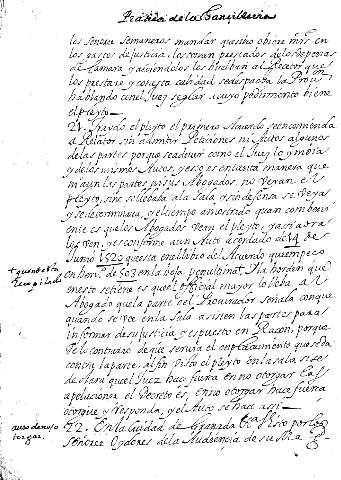 Practica de la Chanzilleria
los señores semaneros mandar que si no obiere mrs en
los gastos de justicia, los tomen prestados de los depos
de Camara y haciendolos les buelban al Recetor que
los prestare, y con esta calidad se despacha la Prov.on
hablando con el Juez seglar a cuyo pedimiento biene
el pleyto
21. Traydo el pleyto el primero Acuerdo se encomienda
a Relator sin admitir Peticiones ni Autos algunos
de las partes porque se ha de ver como el Juez lo ymbia
y de los mismos Autos, y esto es en tanta manera que
ni aun las partes ni sus Abogados no veran el
pleyto, sino se llebara a la Sala y sin defensa se veya
y se determinara, y el tiempo a mostrado quan combeni
ente es que los Abogados vean el pleyto, y asi aora
les ven, y es conforme a un Auto acordado de 14 de
Junio 1520 questa en el libro del Acuerdo que empeço
en hen.o de 503 en la hoja penultima. I la horden que
en esto se tiene es que el official mayor lo lleba al
Abogado que la parte o el Procurador señala con que
quando se vee en la Sala assisten las partes para
informar de su justicia y es puesto en Raçon, porque
de lo contrario de que serviria el emplaçamiento que se da
contra la parte. al fin Visto el pleyto en la sala si se
declara que el Juez hace fuerza en no otorgar las
apelaciones el Decreto es, en no otorgar hace fuerza
otorgue y reponga, y el Auto se hace assi
22. En la Ciudad de Granada &c. Visto por los
Señores Oydores de la Audiencia de su Mag.
+ quando esto
Recopilado
auto de no
torgar.